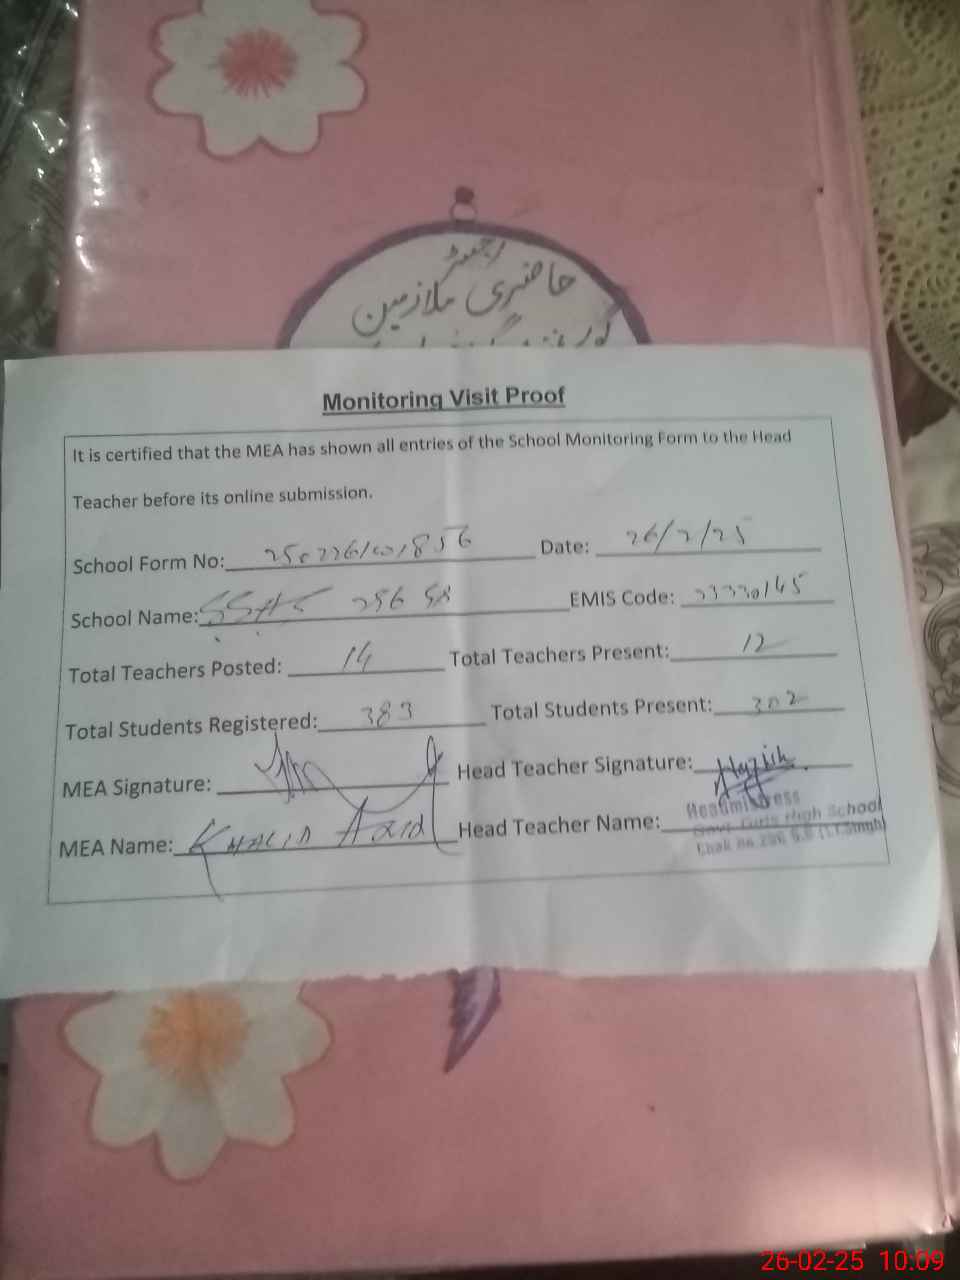 رجسٹر
حاضری ملازمین
Monitoring Visit Proof
It is certified that the MEA has shown all entries of the School Monitoring Form to the Head
Teacher before its online submission.
School Form No: Date: 26/2/25
School Name: EMIS Code:
Total Teachers Posted: 14 Total Teachers Present: 12
Total Students Registered: 383 Total Students Present: 302
MEA Signature: Head Teacher Signature:
MEA Name: Khalid Head Teacher Name:
Headmistress
Govt Girls High School
26-02-25 10:09